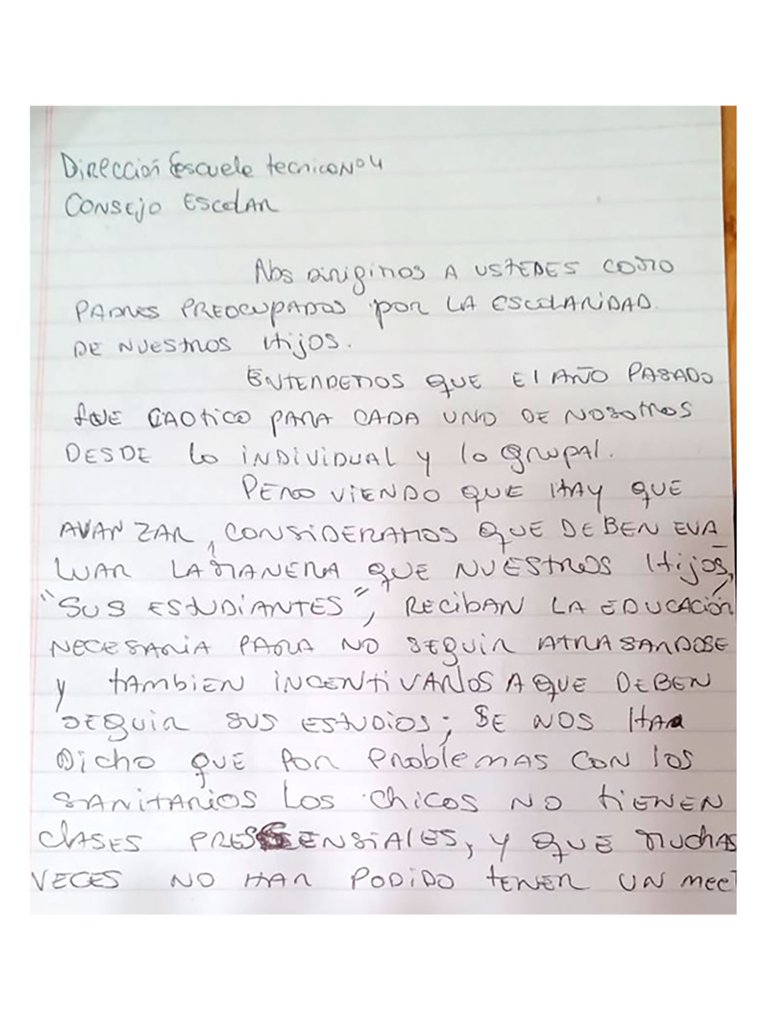 Dirección Escuela tecnica Nº 4
CONSEJO ESCOLAR
NOS dirigimos A USTEDES COMO
PADRES PREOCUPADOS por LA ESCOLARIDAD.
DE NUESTROS HIJOS.
ENTENDEMOS QUE El AÑO PASADO
fUE CAOTICO PARA CADA UNO DE NOSOTROS
DESDE lo INDIVIDUAL y lo grupal.
PERO VIENDO QUE HAY QUE
AVANZAR, CONSIDERAMOS QUE DEBEN EVA
LUAR LA MANERA QUE NUESTROS HIjOS,
"SUS ESTUDIANTES", RECIBAN LA EDUCACIÓN
NECESARIA PARA NO SEGUIR ATRASANDOSE
y TAMBIEN INCENTIVARLOS A QUE DEBEN
SEGUIR SUS ESTUDIOS; SE NOS HA
Dicho QUE POR ProblEMAS CON los
SANITARIOS LOS chicos NO tIENEN
clASES PRESENSIALES, Y QUE MUCHAS
VECES NO HAN PODIDO tENER UN MEET